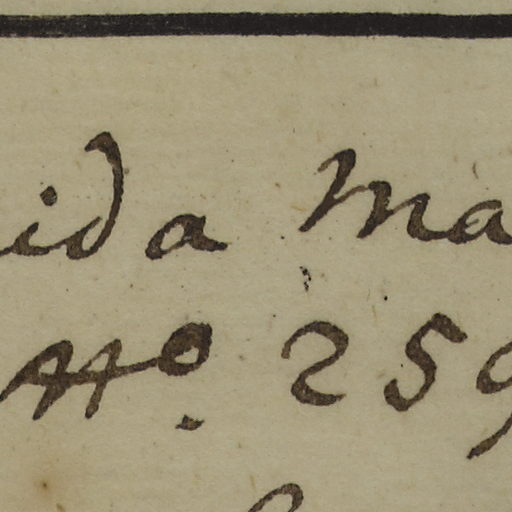 ida Ma
No. 259